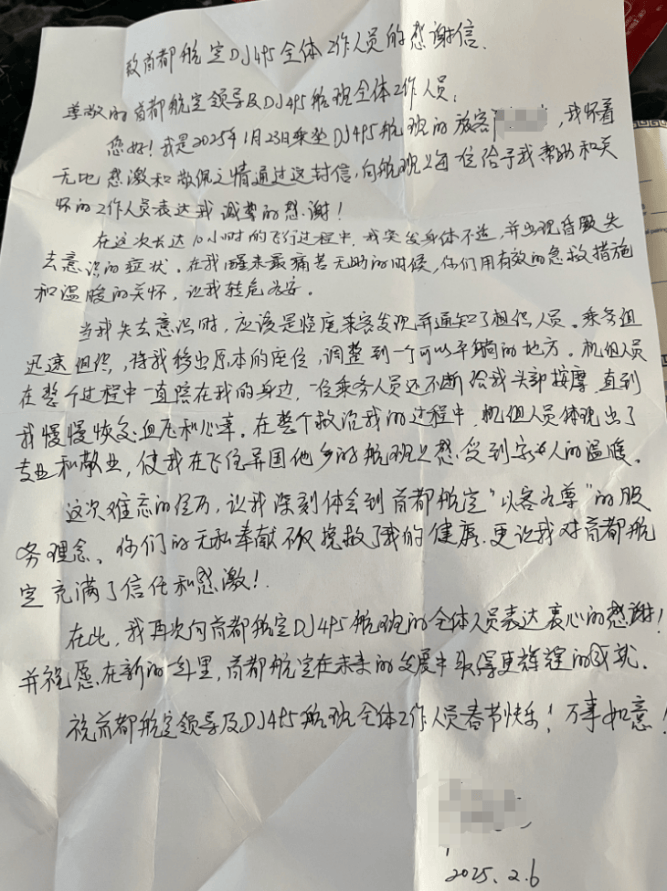 致首都航空DJ495全体工作人员的感谢信.
尊敬的首都航空领导及DJ495航班全体工作人员：
您好！我是2025年1月23日乘坐DJ495航班的旅客，我怀着
无比感激和敬佩之情通过这封信，向航班上每一位给予我帮助和关
怀的工作人员表达我诚挚的感谢！
在这次长达10小时的飞行过程中，我突发身体不适，并出现昏厥失
去意识的症状。在我醒来最痛苦无助的时候，你们用有效的急救措施
和温暖的关怀，让我转危为安。
当我失去意识时，应该是临座乘客发现并通知了机组人员。乘务组
迅速组织，将我移出原本的座位，调整到一个可以平躺的地方。机组人员
在整个过程中一直陪在我的身边，一位乘务人员还不断给我头部按摩，直到
我慢慢恢复血压和心率。在整个救治我的过程中，机组人员体现出了
专业和敬业，使我在飞往异国他乡的航班上感受到家人的温暖。
这次难忘的经历，让我深刻体会到首都航空“以客为尊”的服
务理念。你们的无私奉献不仅挽救了我的健康，更让我对首都航
空充满了信任和感激！
在此，我再次向首都航空DJ495航班的全体人员表达衷心的感谢！
并祝愿在新的一年里，首都航空在未来的发展中取得更辉煌的成就。
祝首都航空领导及DJ495航班全体工作人员春节快乐！万事如意！
2025.2.6